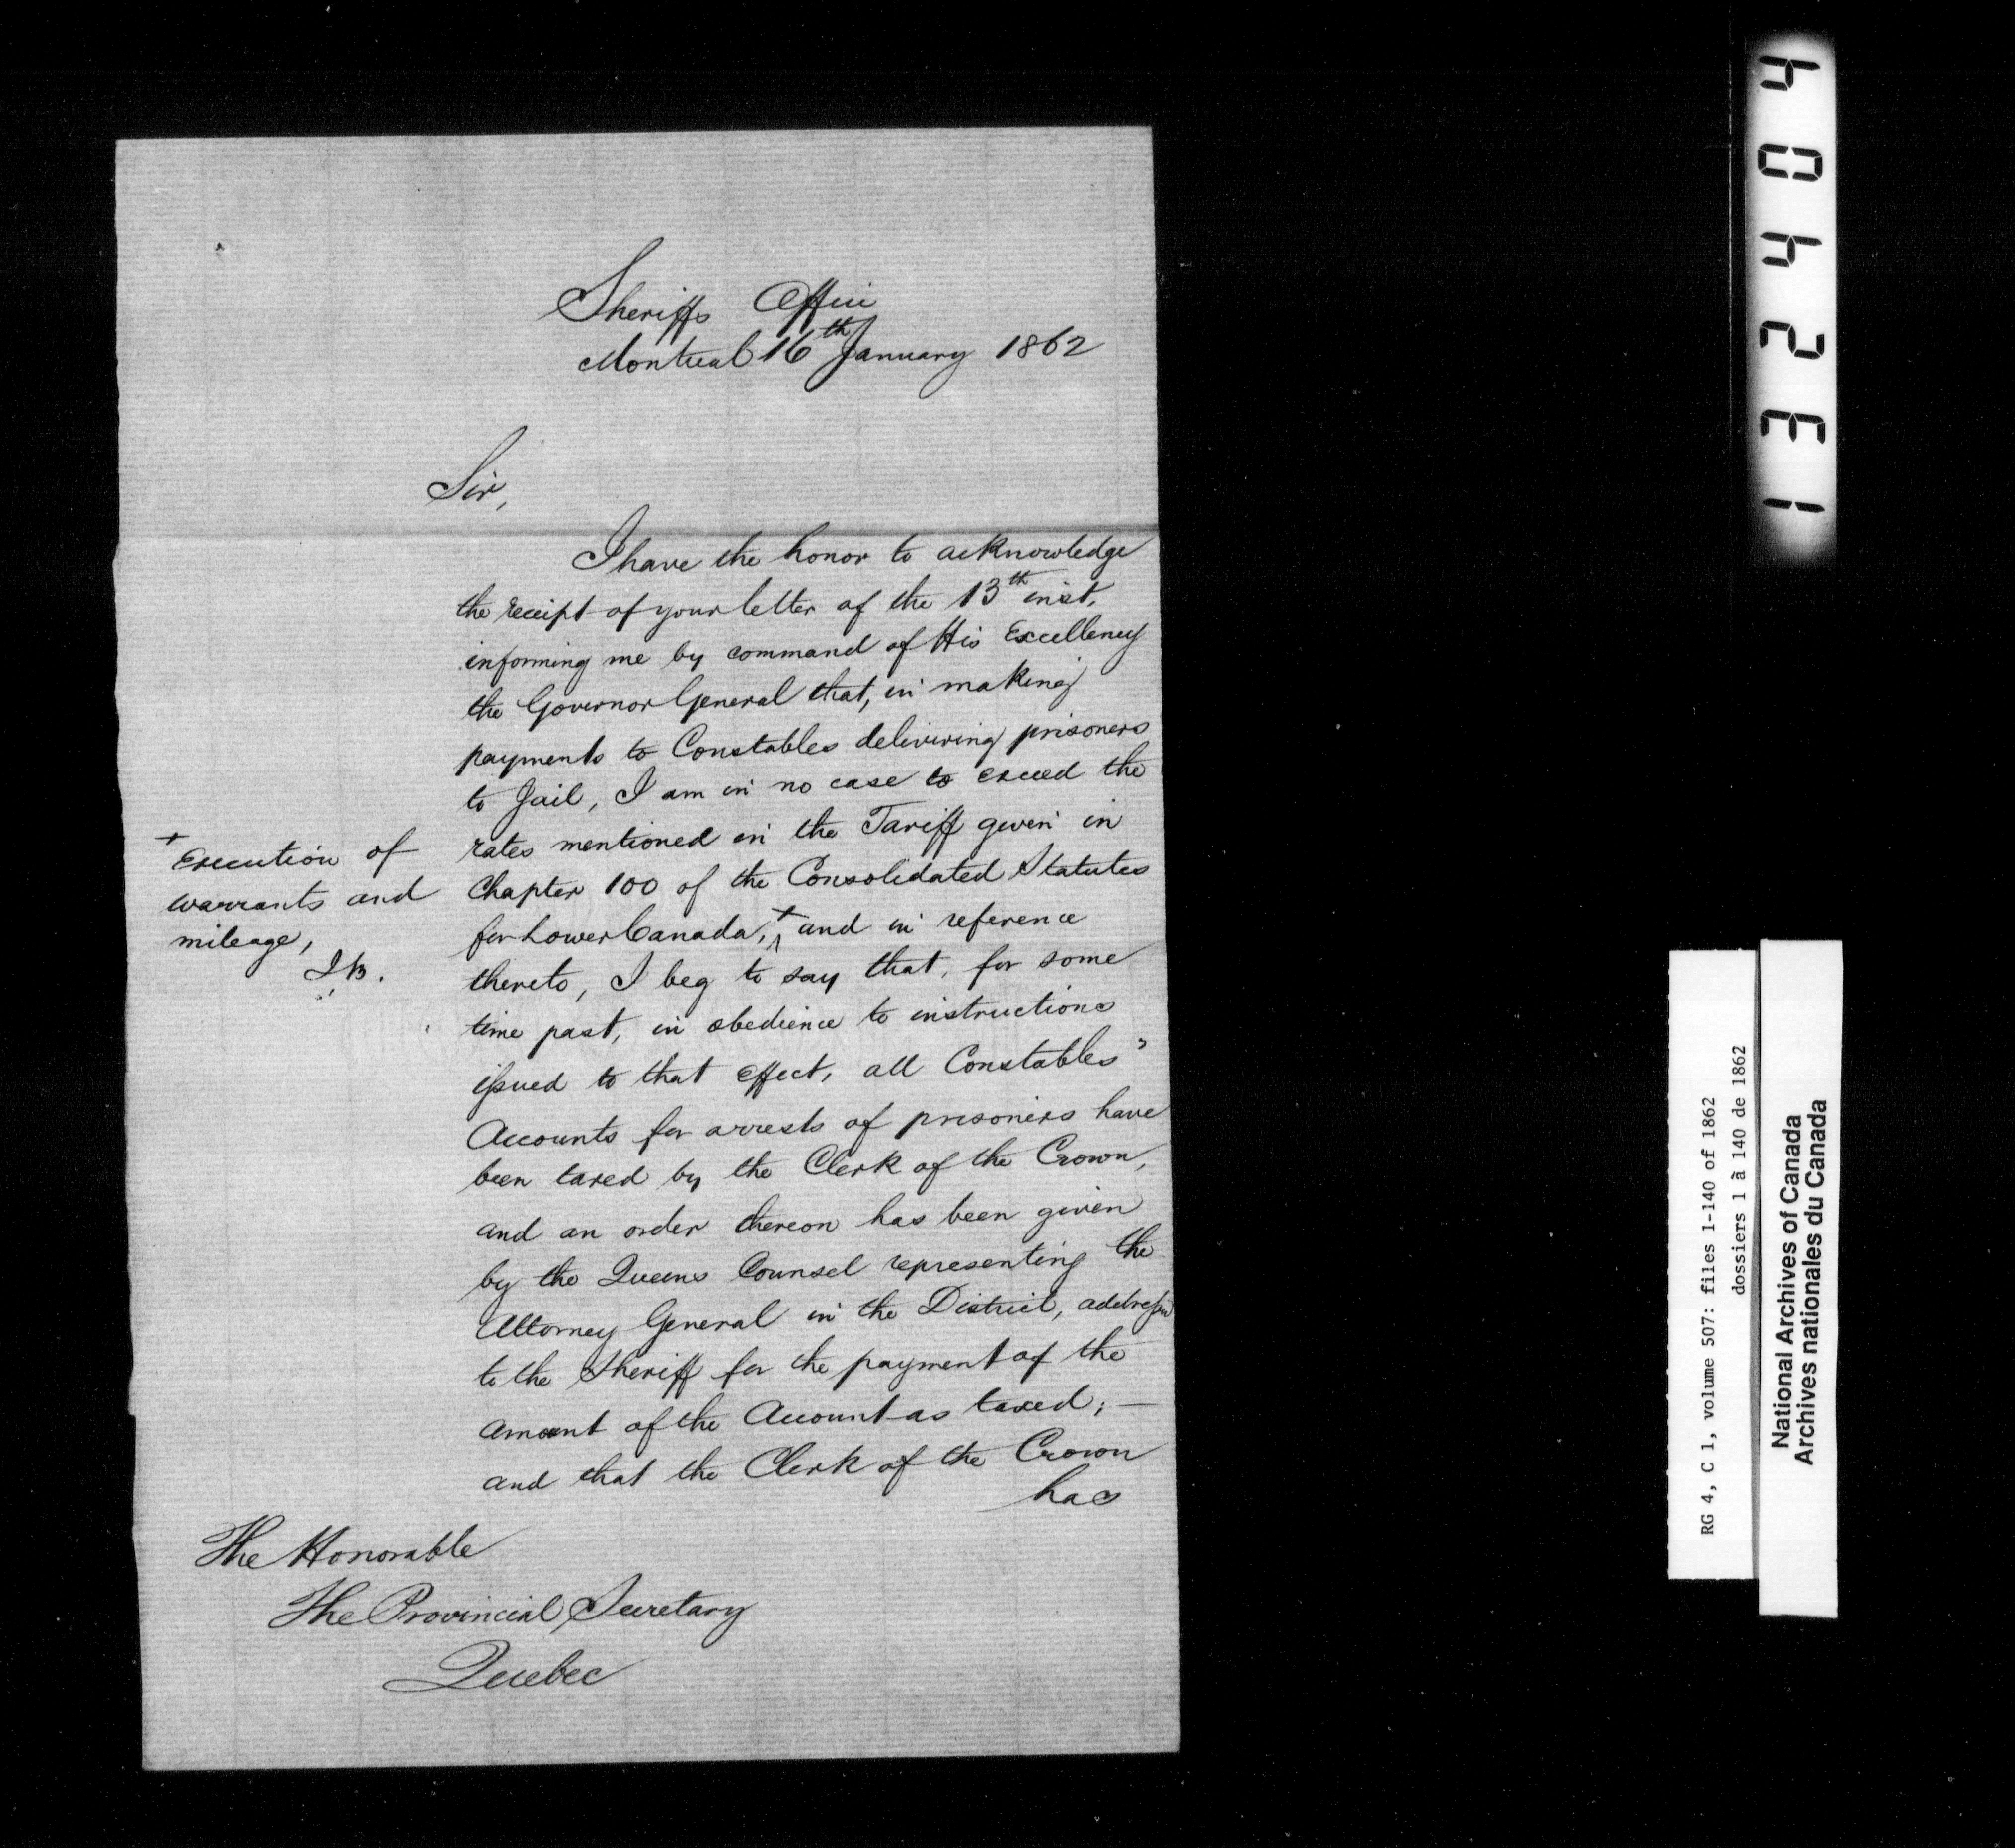 Sheriffs Office
Montreal 16th January 1862
Sir,
I have the honor to acknowledge
the receipt of your letter of the 13th inst,
informing me by command of His Excellency
the Governor General that, in making
payments to Constables delivering prisoners
to Jail, I am in no case to exceed the
rates mentioned in the Tariff given in
Chapter 100 of the Consolidated Statutes
for Lower Canada,+ and in reference
thereto, I beg to say that, for some
time past, in obedience to instructions
issued to that effect, all Constables'
Accounts for arrests of prisoners have
been taxed by the Clerk of the Crown,
and an order thereon has been given
by the Queens Counsel representing the
Attorney General in the District, addressed
to the Sheriff for the payment of the
amount of the Account as taxed; —
and that the Clerk of the Crown
has
+ Execution of
warrants and
mileage,
The Honorable
The Provincial Secretary
Quebec
132404
RG 4, C 1, volume 507: files 1-140 of 1862
dossiers 1 à 140 de 1862
National Archives of Canada
Archives nationales du Canada